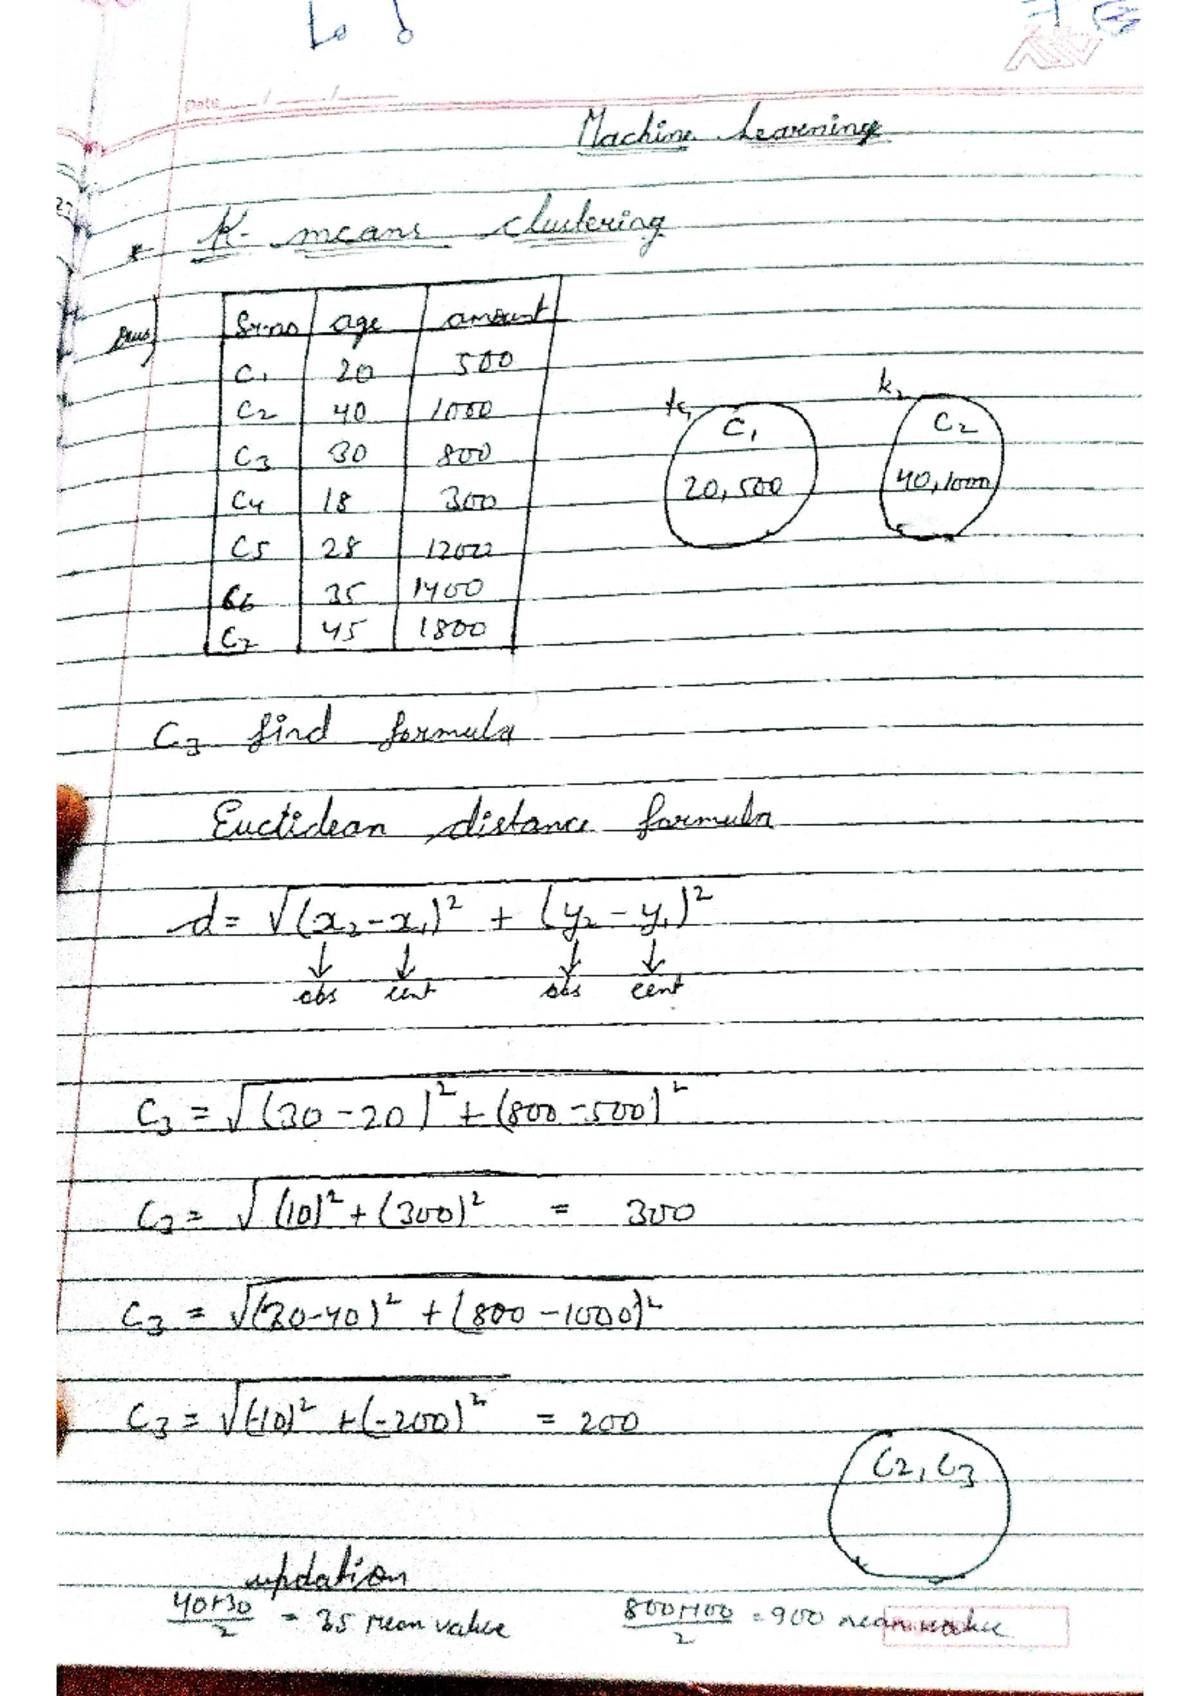 Date
Machine Learning
* K-means clustering
Sr.no age amount
C1 20 500
C2 40 1000
C3 30 800
C4 18 300
C5 28
C6 35 1400
C7 45 1800
k1 C1
20, 500
k2 C2
40, 1000
C3 find formula
Euclidean distance formula
d = √(x2 - x1)² + (y2 - y1)²
↓ ↓ ↓ ↓
obs cent obs cent
C3 = √(30 - 20)² + (800 - 500)²
C3 = √(10)² + (300)² = 300
C3 = √(30-40)² + (800 - 1000)²
C3 = √(-10)² + (-200)² = 200
C2, C3
updation
40+30/2 = 35 mean value
= 900 mean value